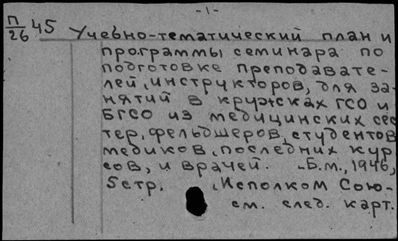 -1-
П/26 45 Учебно-тематический план и
программы семинара по
подготовке преподавате-
лей, инструкторов, для за-
нятий в кружках ГСО и
БГСО из медицинских сес
тер, фельдшеров, студентов
медиков, последних кур
сов, и врачей. Б.м., 1946,
5стр. , Исполком Сою-
см. след. карт.